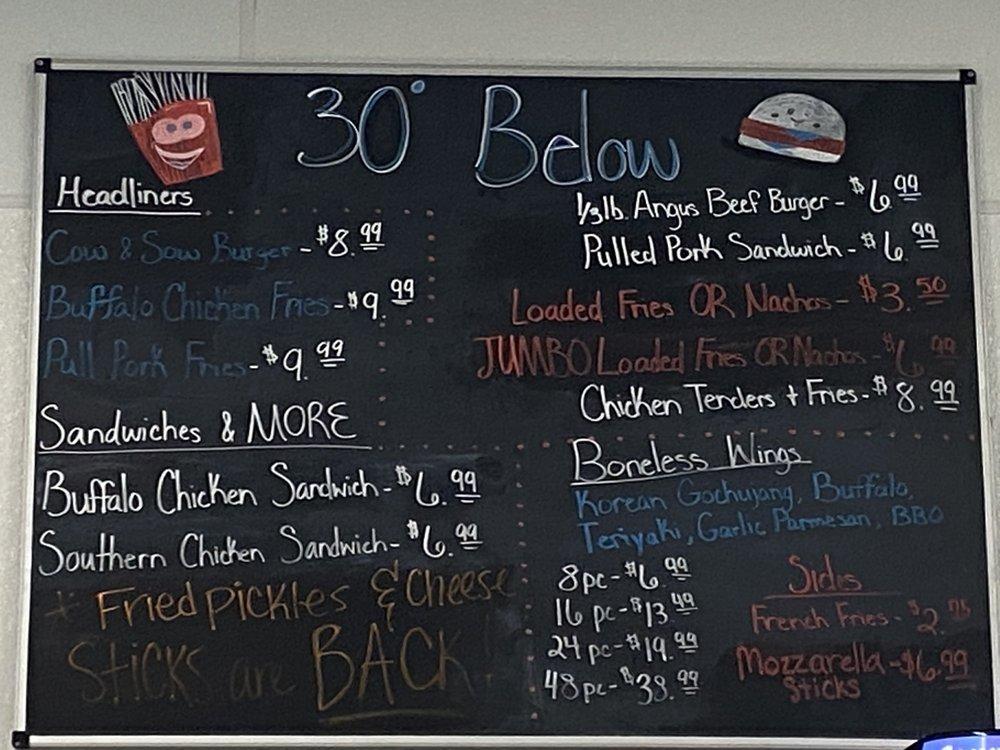 30° Below
Headliners
Cow & Sow Burger - $8.99
Buffalo Chicken Fries - $9.99
Pull Pork Fries - $9.99
Sandwiches & MORE
Buffalo Chicken Sandwich - $6.99
Southern Chicken Sandwich - $6.99
+ Fried pickles & Cheese
Sticks are BACK!
1/3 lb. Angus Beef Burger - $6.99
Pulled Pork Sandwich - $6.99
Loaded Fries OR Nachos - $3.50
JUMBO Loaded Fries OR Nachos - $6.99
Chicken Tenders + Fries - $8.99
Boneless Wings
Korean Gochujang, Buffalo,
Teriyaki, Garlic Parmesan, BBQ
8 pc - $6.99
16 pc - $13.49
24 pc - $19.99
48 pc - $38.99
Sides
French Fries - $2.75
Mozzarella - $6.99
Sticks